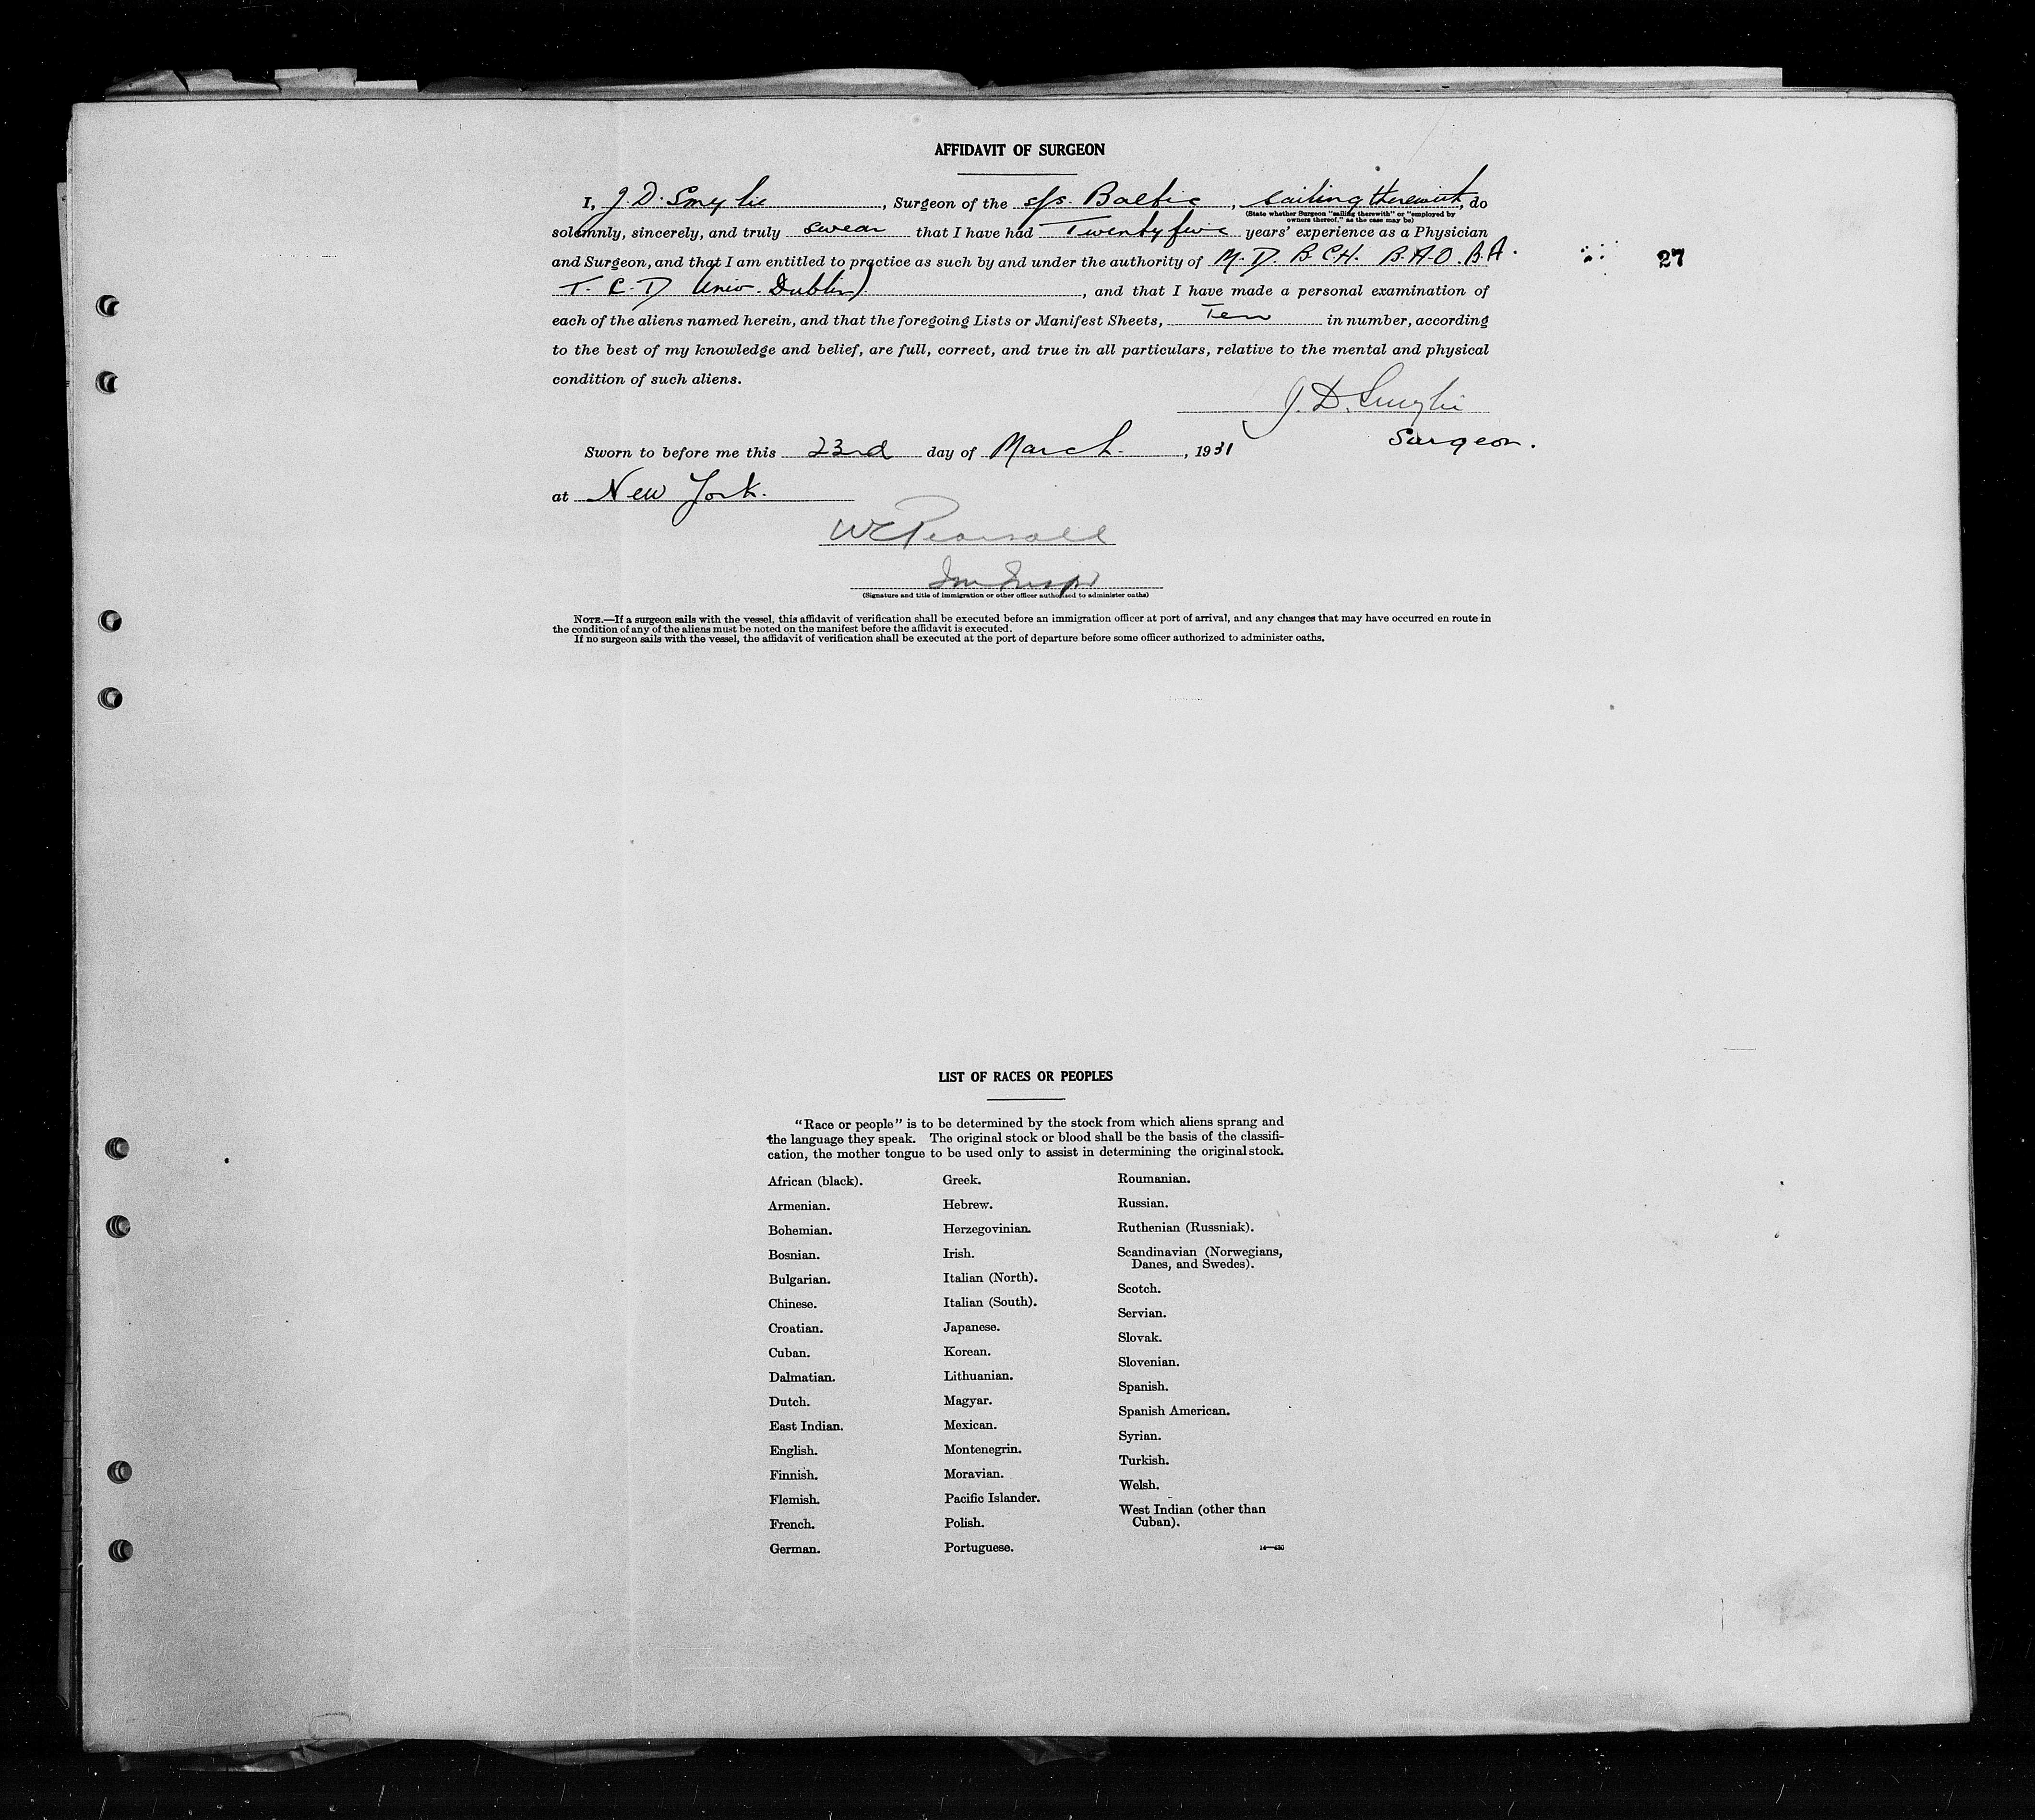 AFFIDAVIT OF SURGEON
I, J. D. Smylie, Surgeon of the s/s. Baltic, sailing therewith, do
(State whether Surgeon "sailing therewith" or "employed by
owners thereof," as the case may be)
solemnly, sincerely, and truly swear that I have had Twenty five years' experience as a Physician
and Surgeon, and that I am entitled to practice as such by and under the authority of M. D. B.C.H. B.A.O. B.A.
27
T. C. D Univ. Dublin), and that I have made a personal examination of
each of the aliens named herein, and that the foregoing Lists or Manifest Sheets, Ten in number, according
to the best of my knowledge and belief, are full, correct, and true in all particulars, relative to the mental and physical
condition of such aliens.
J. D. Smylie
Surgeon.
Sworn to before me this 23rd day of March., 1931
at New York.
WC Pearsall
Im Inspr
(Signature and title of immigration or other officer authorized to administer oaths)
NOTE.—If a surgeon sails with the vessel, this affidavit of verification shall be executed before an immigration officer at port of arrival, and any changes that may have occurred en route in
the condition of any of the aliens must be noted on the manifest before the affidavit is executed.
If no surgeon sails with the vessel, the affidavit of verification shall be executed at the port of departure before some officer authorized to administer oaths.
LIST OF RACES OR PEOPLES
"Race or people" is to be determined by the stock from which aliens sprang and
the language they speak. The original stock or blood shall be the basis of the classifi-
cation, the mother tongue to be used only to assist in determining the original stock.
African (black).
Armenian.
Bohemian.
Bosnian.
Bulgarian.
Chinese.
Croatian.
Cuban.
Dalmatian.
Dutch.
East Indian.
English.
Finnish.
Flemish.
French.
German.
Greek.
Hebrew.
Herzegovinian.
Irish.
Italian (North).
Italian (South).
Japanese.
Korean.
Lithuanian.
Magyar.
Mexican.
Montenegrin.
Moravian.
Pacific Islander.
Polish.
Portuguese.
Roumanian.
Russian.
Ruthenian (Russniak).
Scandinavian (Norwegians,
Danes, and Swedes).
Scotch.
Servian.
Slovak.
Slovenian.
Spanish.
Spanish American.
Syrian.
Turkish.
Welsh.
West Indian (other than
Cuban).